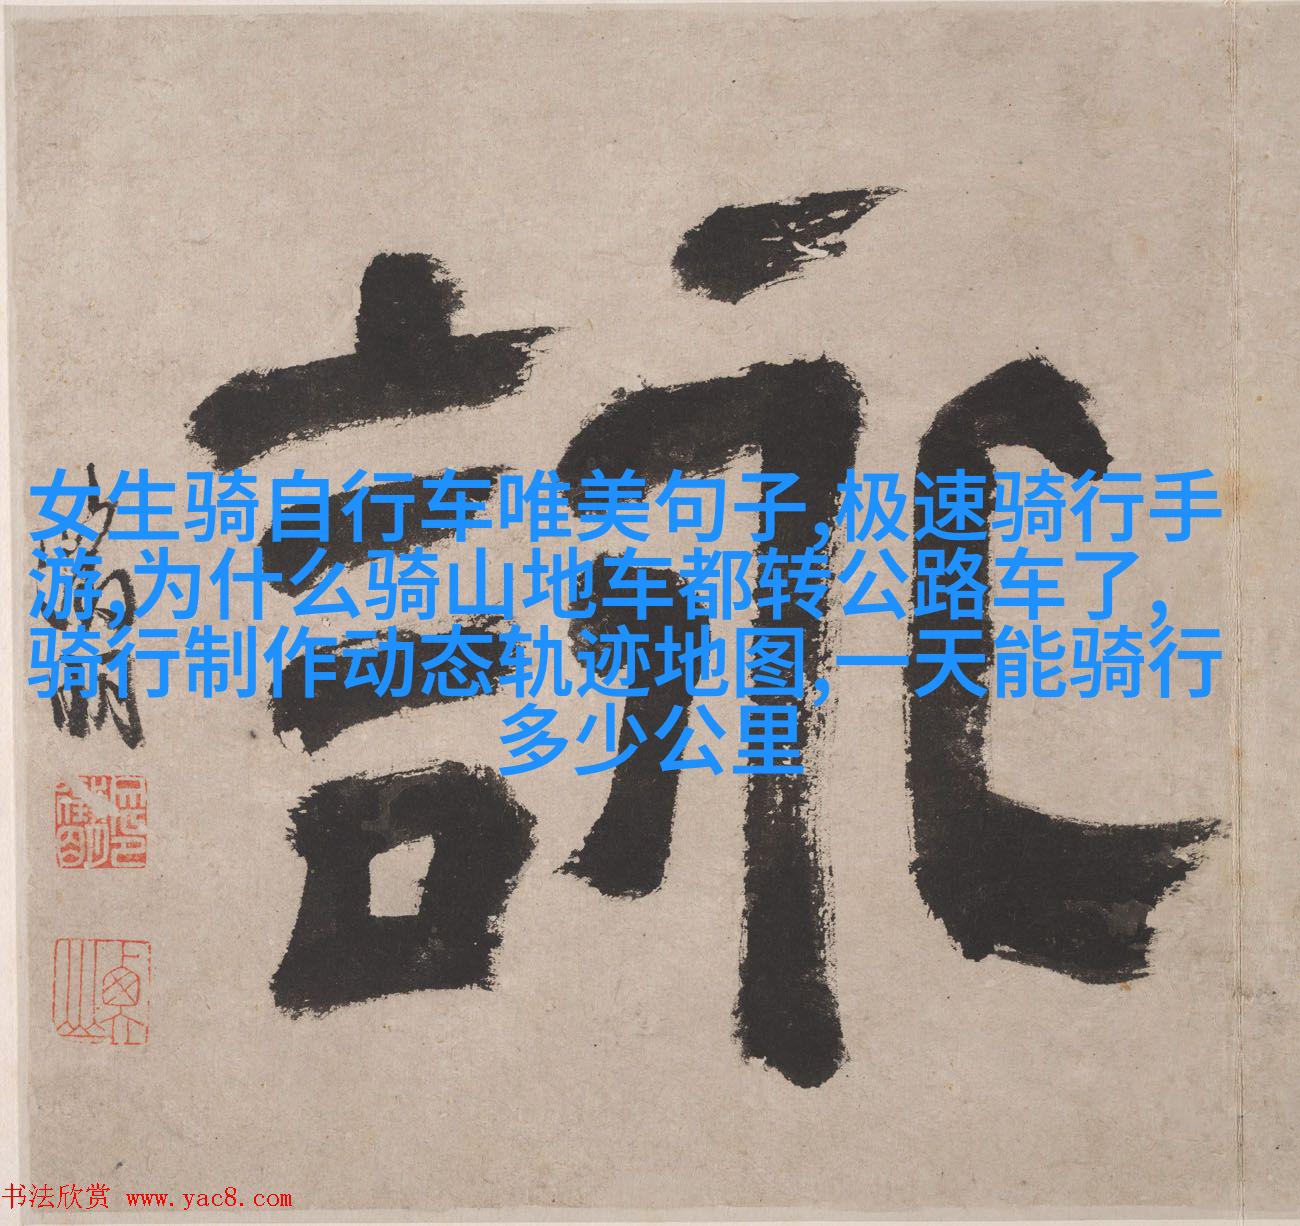 詠
女生骑自行车唯美句子,极速骑行手
游,为什么骑山地车都转公路车了,
骑行制作动态轨迹地图,一天能骑行
多少公里
书法欣赏 www.yac8.com